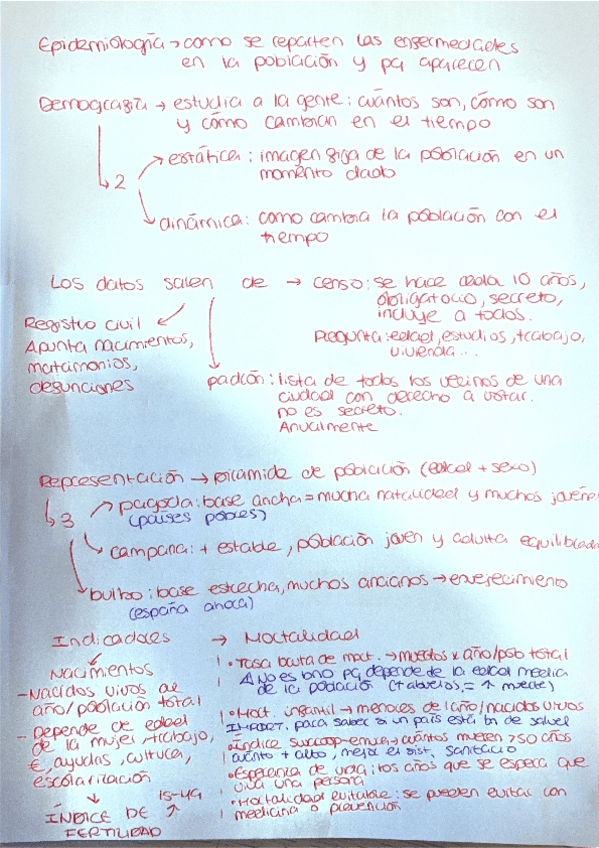 Epidemiología → como se reparten las enfermedades
en la población y pq aparecen
Demografía → estudia a la gente: cuántos son, cómo son
y cómo cambian en el tiempo
↳ 2
→ estática: imagen fija de la población en un
momento dado
↘ dinámica: como cambia la población con el
tiempo
Los datos salen de → censo: se hace cada 10 años,
obligatorio, secreto,
incluye a todos.
Pregunta: edad, estudios, trabajo,
vivienda...
Registro civil
Apunta nacimientos,
matrimonios,
defunciones
padrón: lista de todos los vecinos de una
ciudad con derecho a votar.
no es secreto.
Anualmente
Representación → pirámide de población (edad + sexo)
↳ 3
pagoda: base ancha = mucha natalidad y muchos jóvenes
(países pobres)
campana: + estable, población joven y adulta equilibrada
bulbo: base estrecha, muchos ancianos → envejecimiento
(españa ahora)
Indicadores → Mortalidad
Nacimientos
- Nacidos vivos al
año/población total
- Depende de edad
de la mujer, trabajo,
€, ayudas, cultura,
escolarización
15-49
ÍNDICE DE
FERTILIDAD
• Tasa bruta de mort. → muertos x año/pob total
⚠ No es bno pq depende de la edad media
de la población (+ abuelos, = ↑ muerte)
• Mort. infantil → menores de 1 año/nacidos vivos
IMPORT. para saber si un país está bn de salud
• Índice swaroop-emua → cuántos mueren >50 años
cuánto + alto, mejor el sist. sanitario
• Esperanza de vida: los años que se espera que
viva una persona
• Mortalidad evitable: se pueden evitar con
medicina o prevención